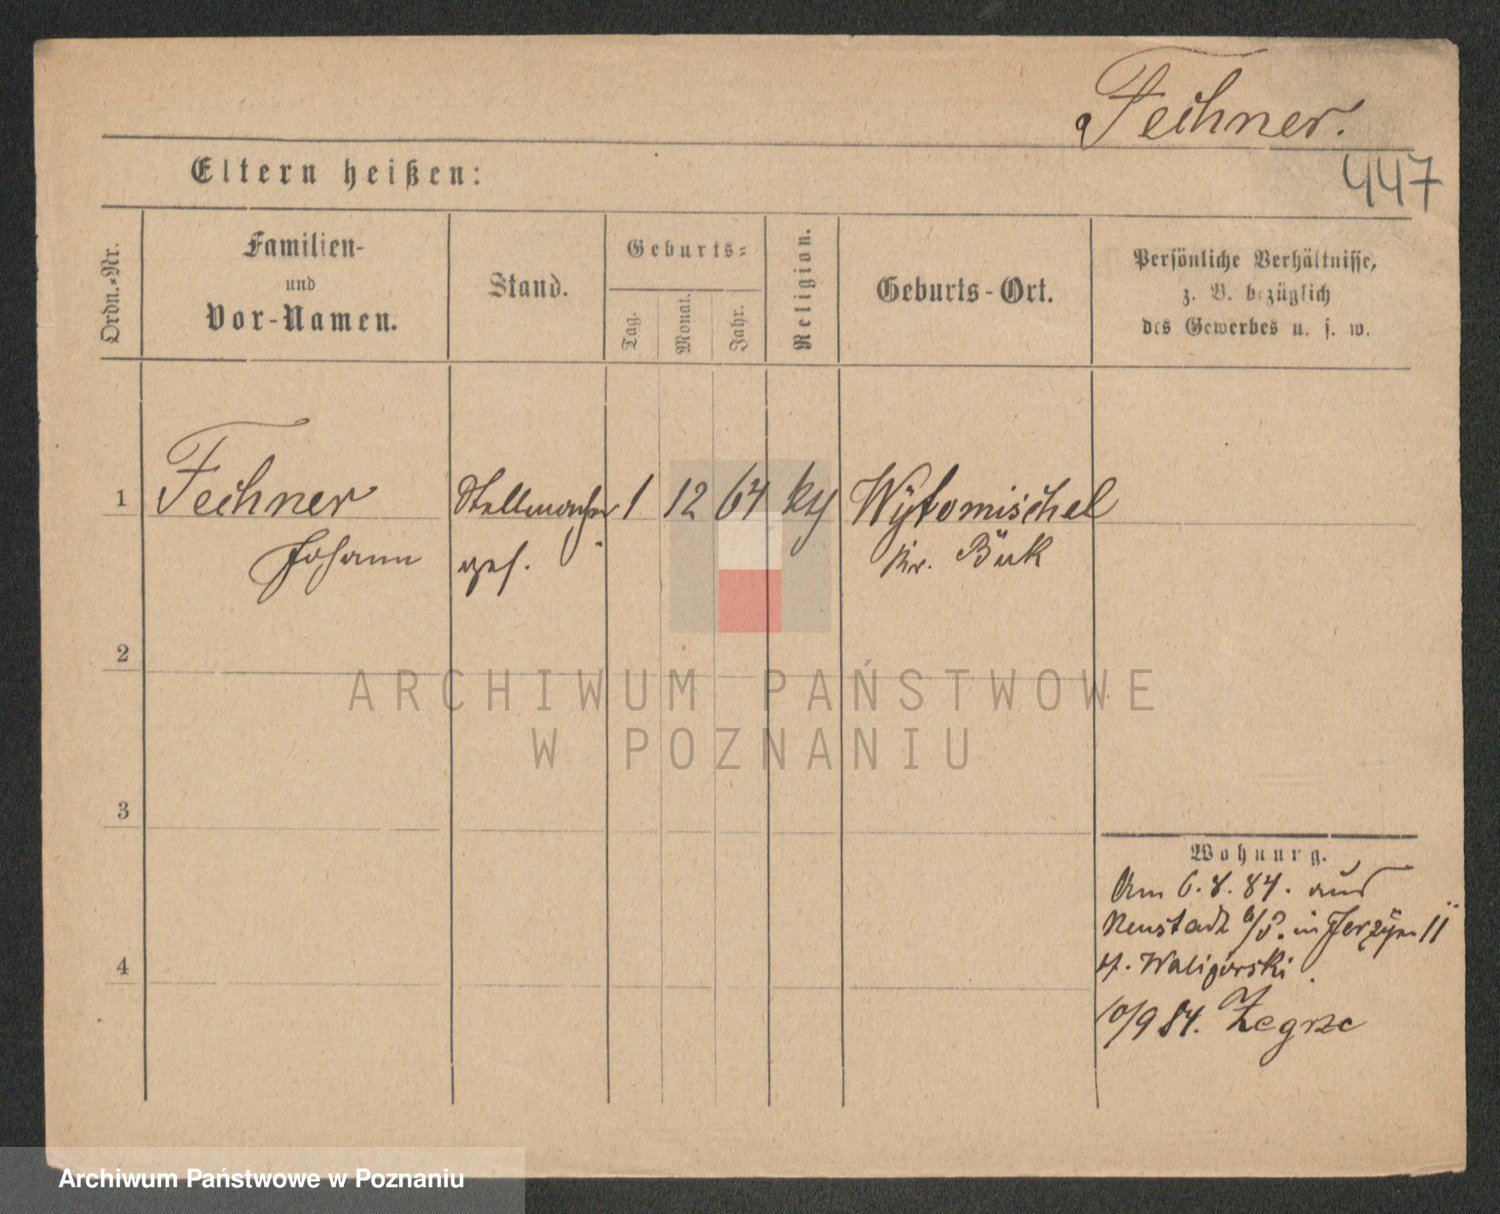 Fechner.
447
Eltern heißen:
Ordn.-Nr.
Familien-
und
Vor-Namen.
Stand.
Geburts-
Tag.
Monat.
Jahr.
Religion.
Geburts-Ort.
Persönliche Verhältnisse,
z. B. bezüglich
des Gewerbes u. s. w.
1 Fechner Stellmacher 1 12 64 Wytomischel
Johann ges. Kr. Buk
2
ARCHIWUM PAŃSTWOWE
W POZNANIU
3
4
Wohnung.
Am 6. 8. 84. aus
Neustadt b/P. in Jerzyce 11
Waligorski.
10/9 84. Zegrze
Archiwum Państwowe w Poznaniu